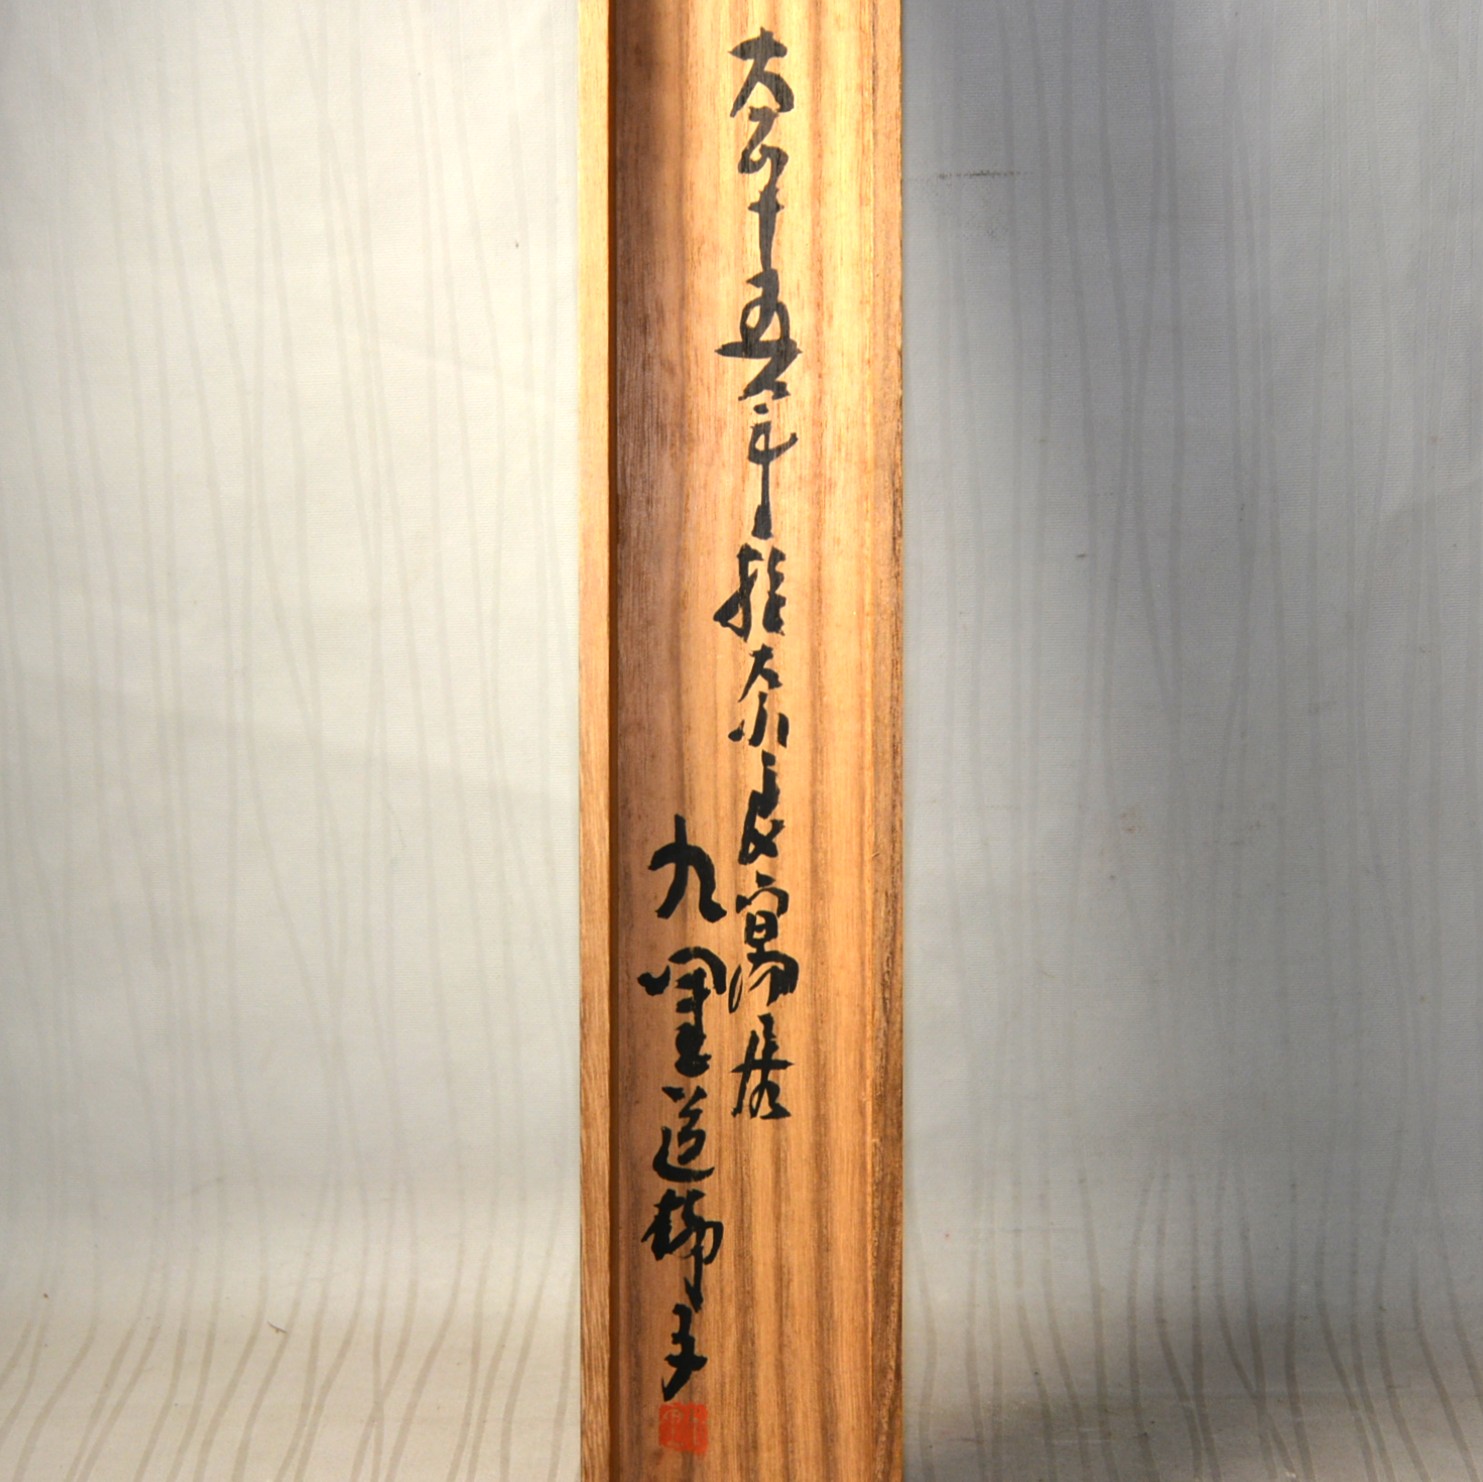 大正十五六年於奈良寓居
九里道柳子